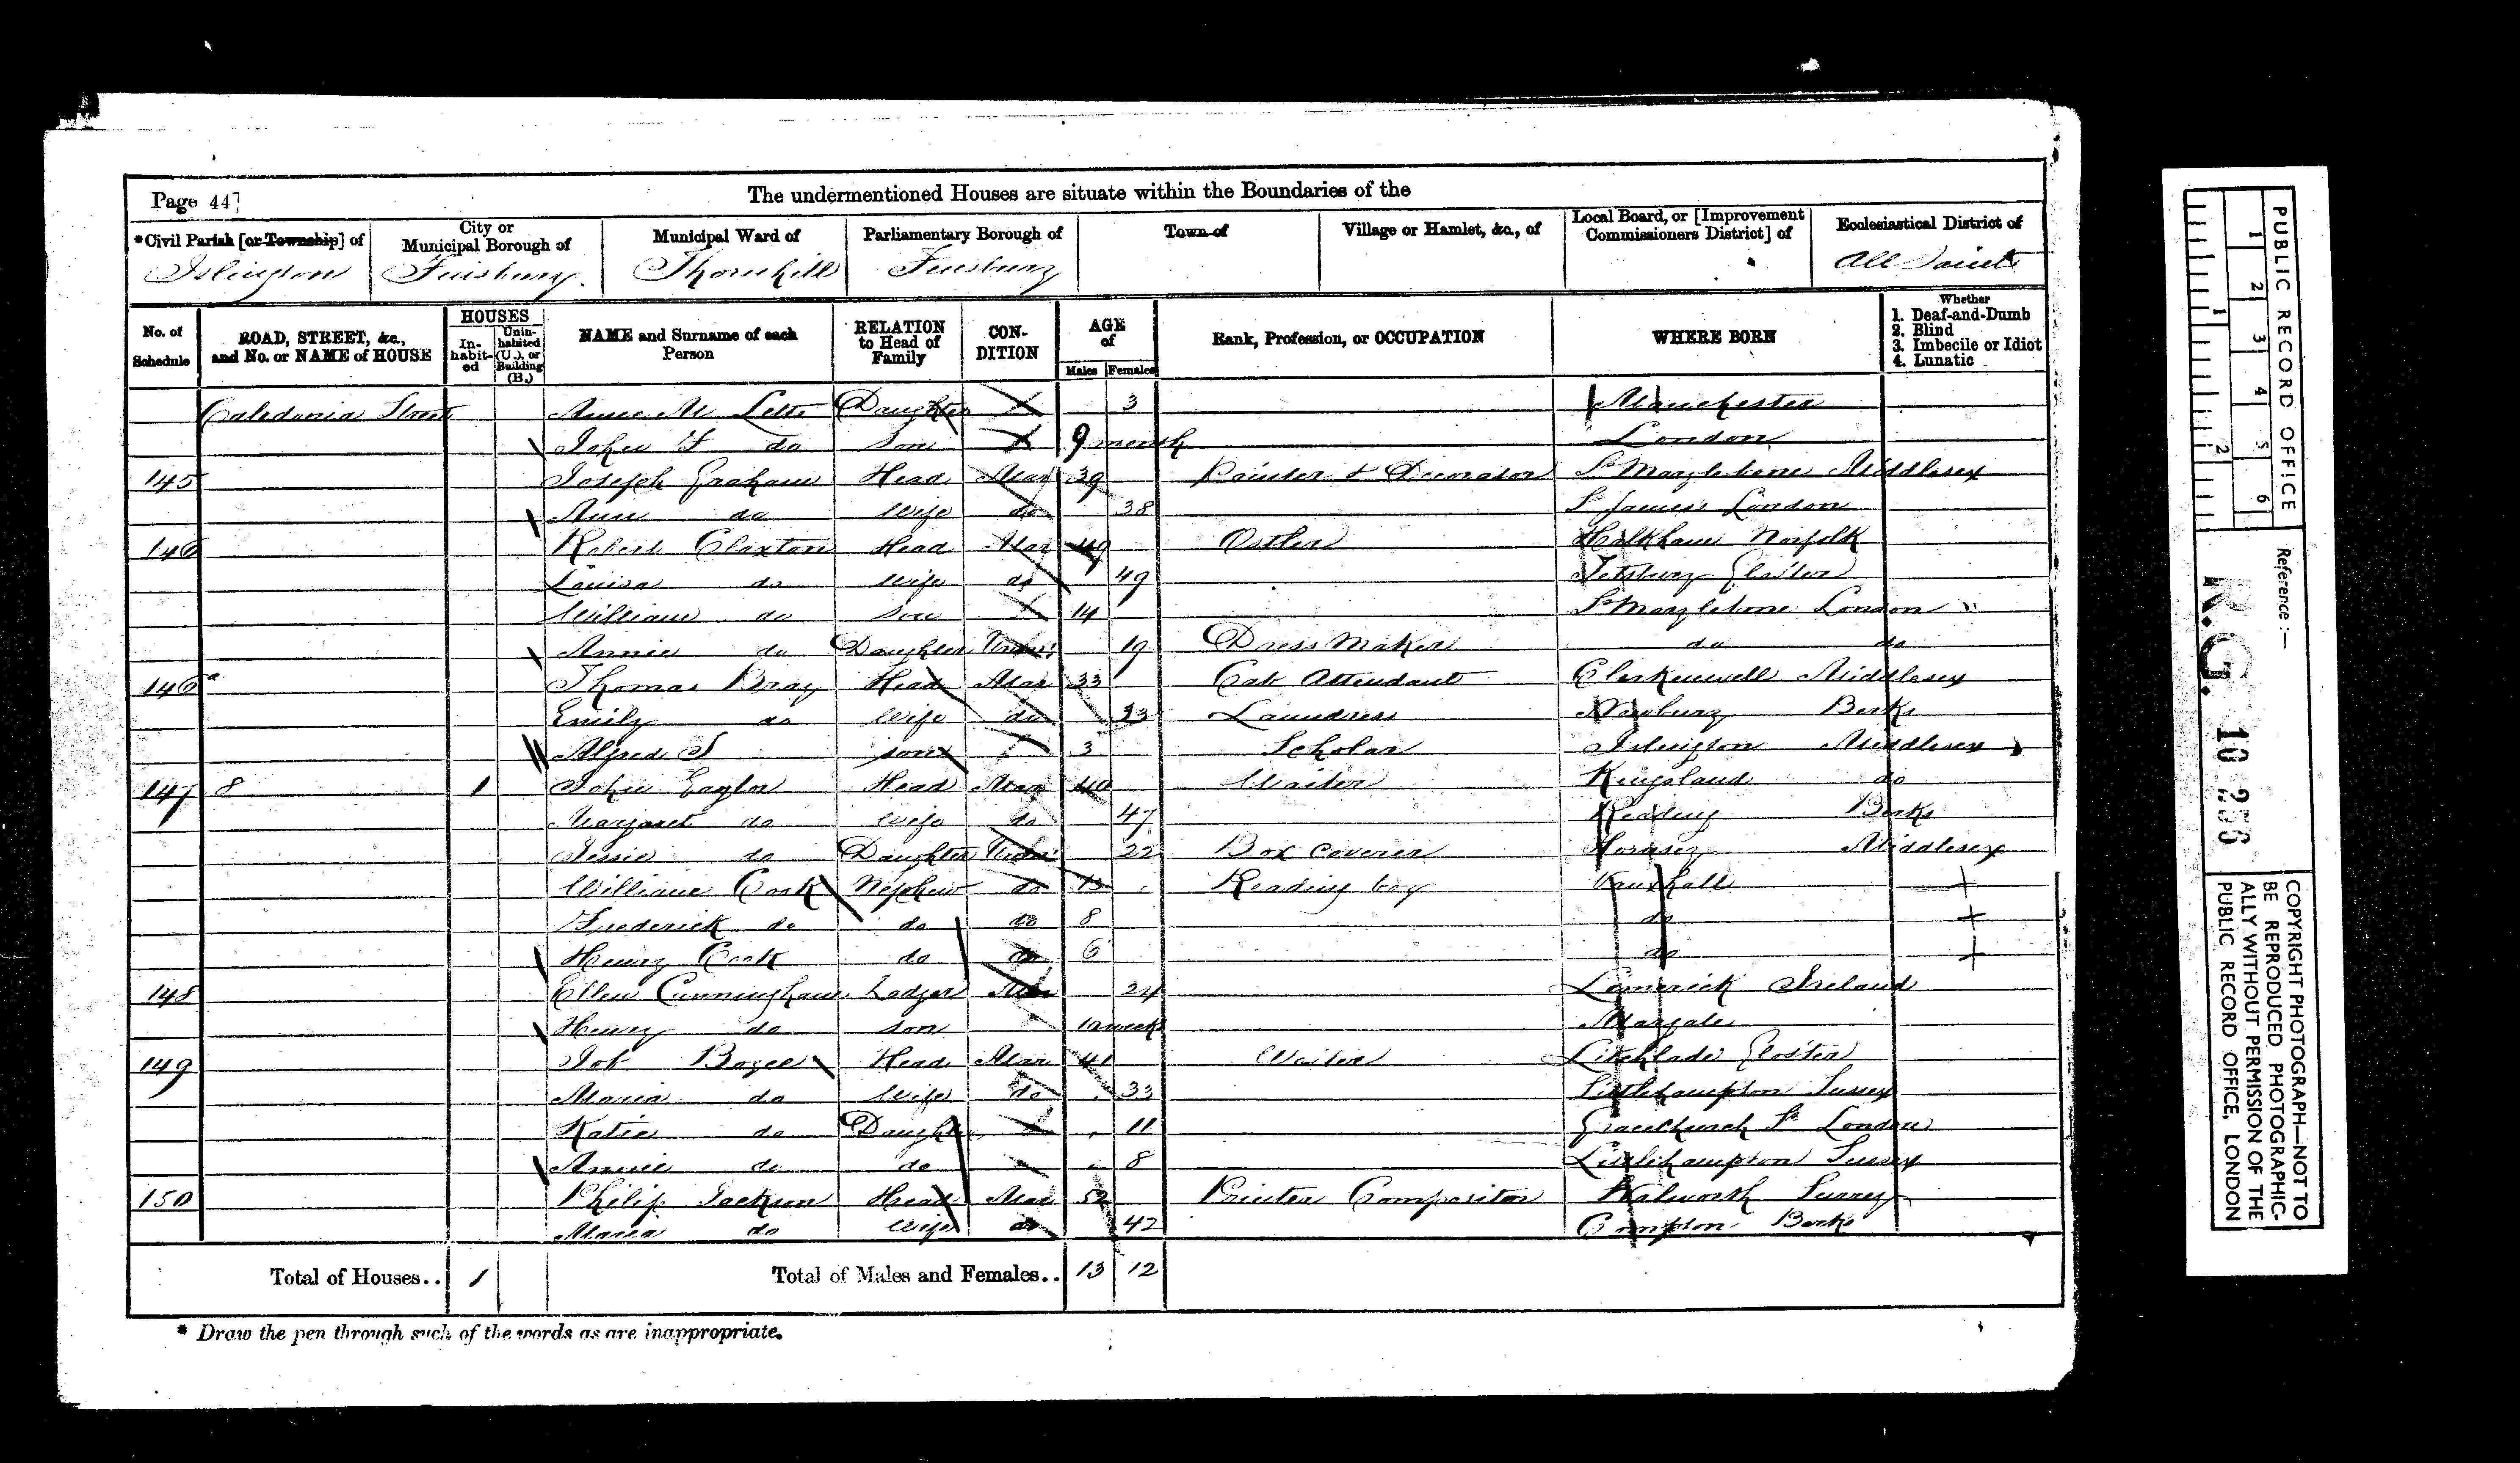 Page 44
The undermentioned Houses are situate within the Boundaries of the
*Civil Parish [or Township] of City or Municipal Borough of Municipal Ward of Parliamentary Borough of Town of Village or Hamlet, &c., of Local Board, or [Improvement Commissioners District] of Ecclesiastical District of
Islington Finsbury Thornhill Finsbury All Saints
No. of Schedule ROAD, STREET, &c., and No. or NAME of HOUSE HOUSES Inhabited Uninhabited (U.), or Building (B.) NAME and Surname of each Person RELATION to Head of Family CONDITION AGE of Males Females Rank, Profession, or OCCUPATION WHERE BORN Whether 1. Deaf-and-Dumb 2. Blind 3. Imbecile or Idiot 4. Lunatic
Caledonia Street Annie M Daughter 3 Manchester
John F do Son 9 month London
145 Joseph Graham Head Mar 39 Painter & Decorator St Marylebone Middlesex
Ann do Wife do 38 St James's London
146 Robert Claxton Head Mar 49 Ostler Holkham Norfolk
Louisa do Wife do 49 Tetsbury Gloster
William do Son 14 St Marylebone London
Annie do Daughter Unmar 19 Dress Maker do do
146a Thomas Bray Head Mar 33 Cab Attendant Clerkenwell Middlesex
Emily do Wife do 33 Laundress Newbury Berks
Alfred J son 3 Scholar Islington Middlesex
147 8 1 John Gaylor Head Mar 40 Waiter Kingsland do
Margaret do Wife do 47 Reading Berks
Jessie do Daughter Unmar 22 Box Coverer Hornsey Middlesex
William Cook Nephew do 13 Reading boy Vauxhall
Frederick do do do 8 do
Henry Cook do do 6 do
148 Ellen Cunningham Lodger Mar 24 Limerick Ireland
Henry do son weeks Margate
149 Job Head Mar 41 Waiter Litchlade Gloster
Maria do Wife do 33 Littlehampton Sussex
Katie do Daughter 11 Gracechurch St London
Annie do do 8 Littlehampton Sussex
150 Philip Jackson Head Mar 52 Printer Compositor Walworth Surrey
Maria do Wife do 42 Compton Berks
Total of Houses.. 1 Total of Males and Females.. 13 12
* Draw the pen through such of the words as are inappropriate.
PUBLIC RECORD OFFICE
1 2 3 4 5 6
1 2
Reference :—
R.G. 10
COPYRIGHT PHOTOGRAPH—NOT TO
BE REPRODUCED PHOTOGRAPHIC-
ALLY WITHOUT PERMISSION OF THE
PUBLIC RECORD OFFICE, LONDON